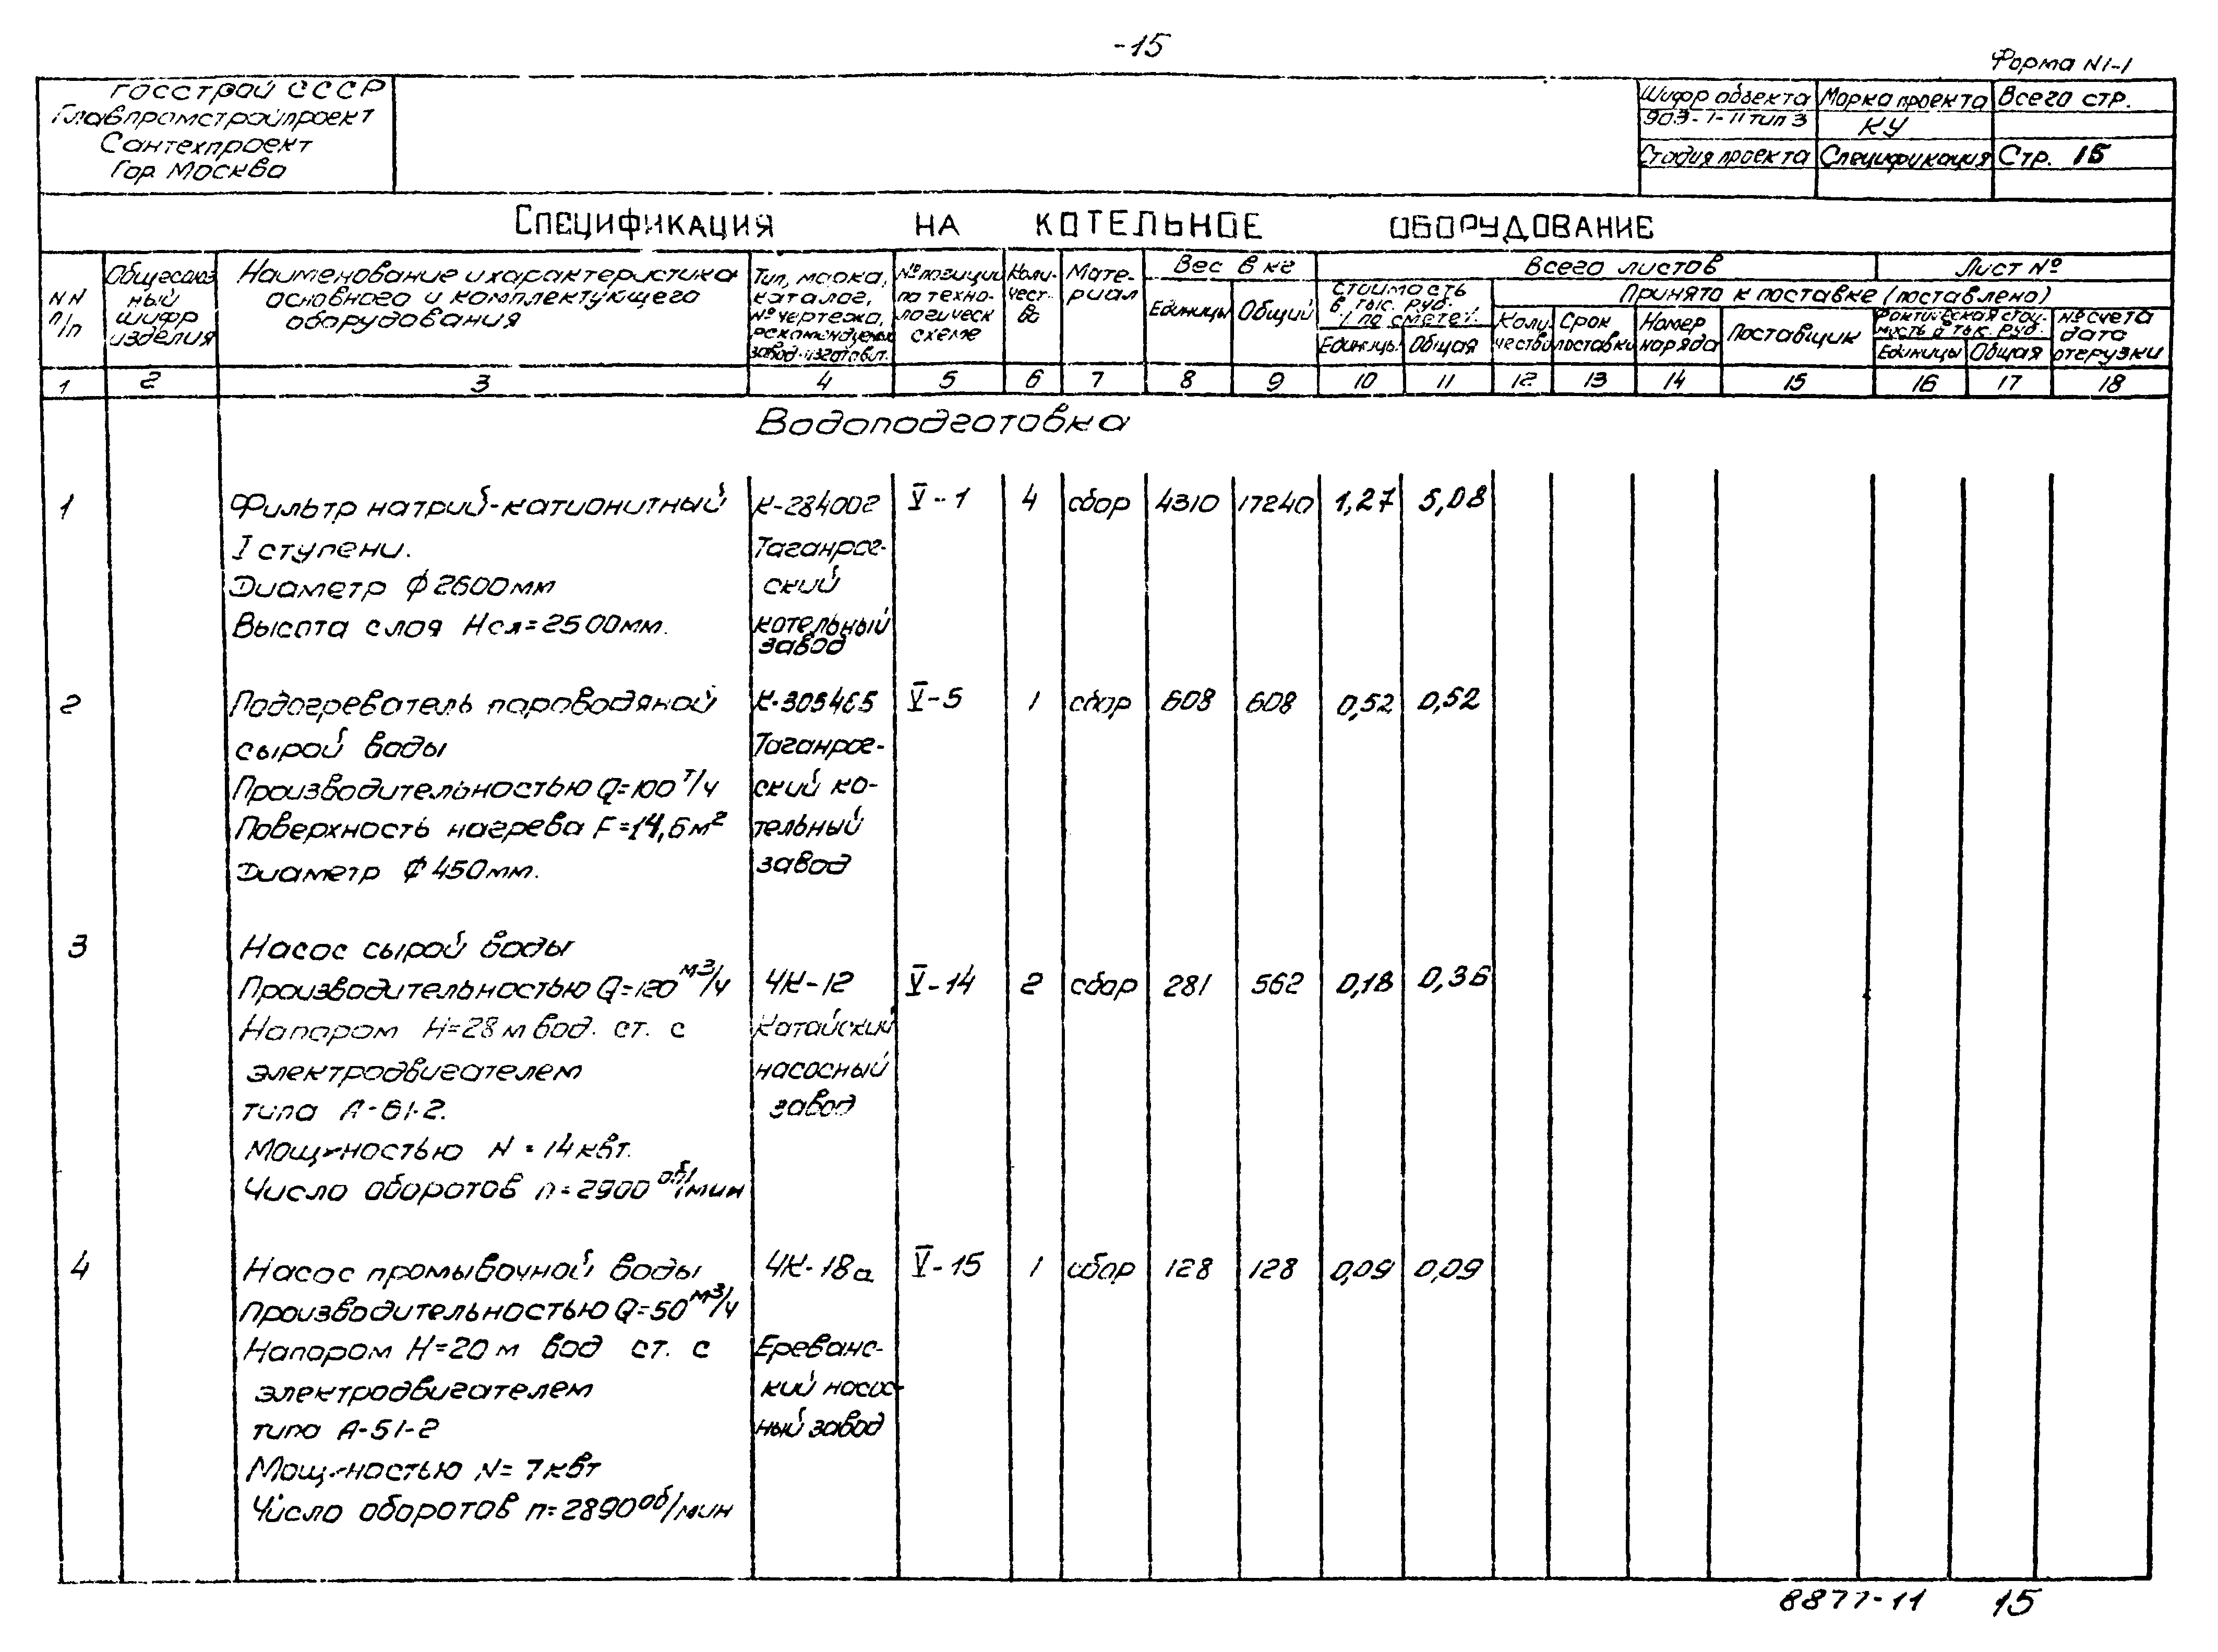 -15
Форма N1-1
Госстрой СССР
Главпромстройпроект
Сантехпроект
Гор Москва
Шифр объекта Марка проекта Всего стр.
903-1-11 тип 3 КУ
Стадия проекта Спецификация Стр. 15
Спецификация на котельное оборудование
NN п/п
Общесоюзный шифр изделия
Наименование и характеристика основного и комплектующего оборудования
Тип, марка, каталог, № чертежа, рекомендуемый завод-изготовит.
№ позиции по техно-логическ схеме
Коли-чест-во
Мате-риал
Вес в кг
Единицы Общий
Всего листов
Лист №
Стоимость в тыс. руб. по смете
Единицы Общая
Принято к поставке (поставлено)
Коли-чество
Срок поставки
Номер наряда
Поставщик
Фактическая стои-мость в тыс. руб.
Единицы Общая
№ счета дата отгрузки
1 2 3 4 5 6 7 8 9 10 11 12 13 14 15 16 17 18
Водоподготовка
1 Фильтр натрий-катионитный К-284002 V-1 4 сбор 4310 17240 1,27 5,08
I ступени. Таганрог-
Диаметр ф 2600мм ский
Высота слоя Нсл=2500мм. котельный
завод
2 Подогреватель пароводяной К-305465 V-5 1 сбор 608 608 0,52 0,52
сырой воды Таганрог-
Производительностью Q=100 т/ч ский ко-
Поверхность нагрева F=14,6м² тельный
Диаметр ф 450мм. завод
3 Насос сырой воды
Производительностью Q=120 м3/ч 4К-12 V-14 2 сбор 281 562 0,18 0,36
Напором Н=28м вод. ст. с Катайский
электродвигателем насосный
типа А-61-2. завод
Мощностью N = 14квт.
Число оборотов n=2900 об/мин
4 Насос промывочной воды 4К-18а V-15 1 сбор 128 128 0,09 0,09
Производительностью Q=50 м3/ч
Напором Н=20м вод ст. с Ереванс-
электродвигателем кий насос-
типа А-51-2 ный завод
Мощностью N= 7квт
Число оборотов n=2890 об/мин
8877-11 15